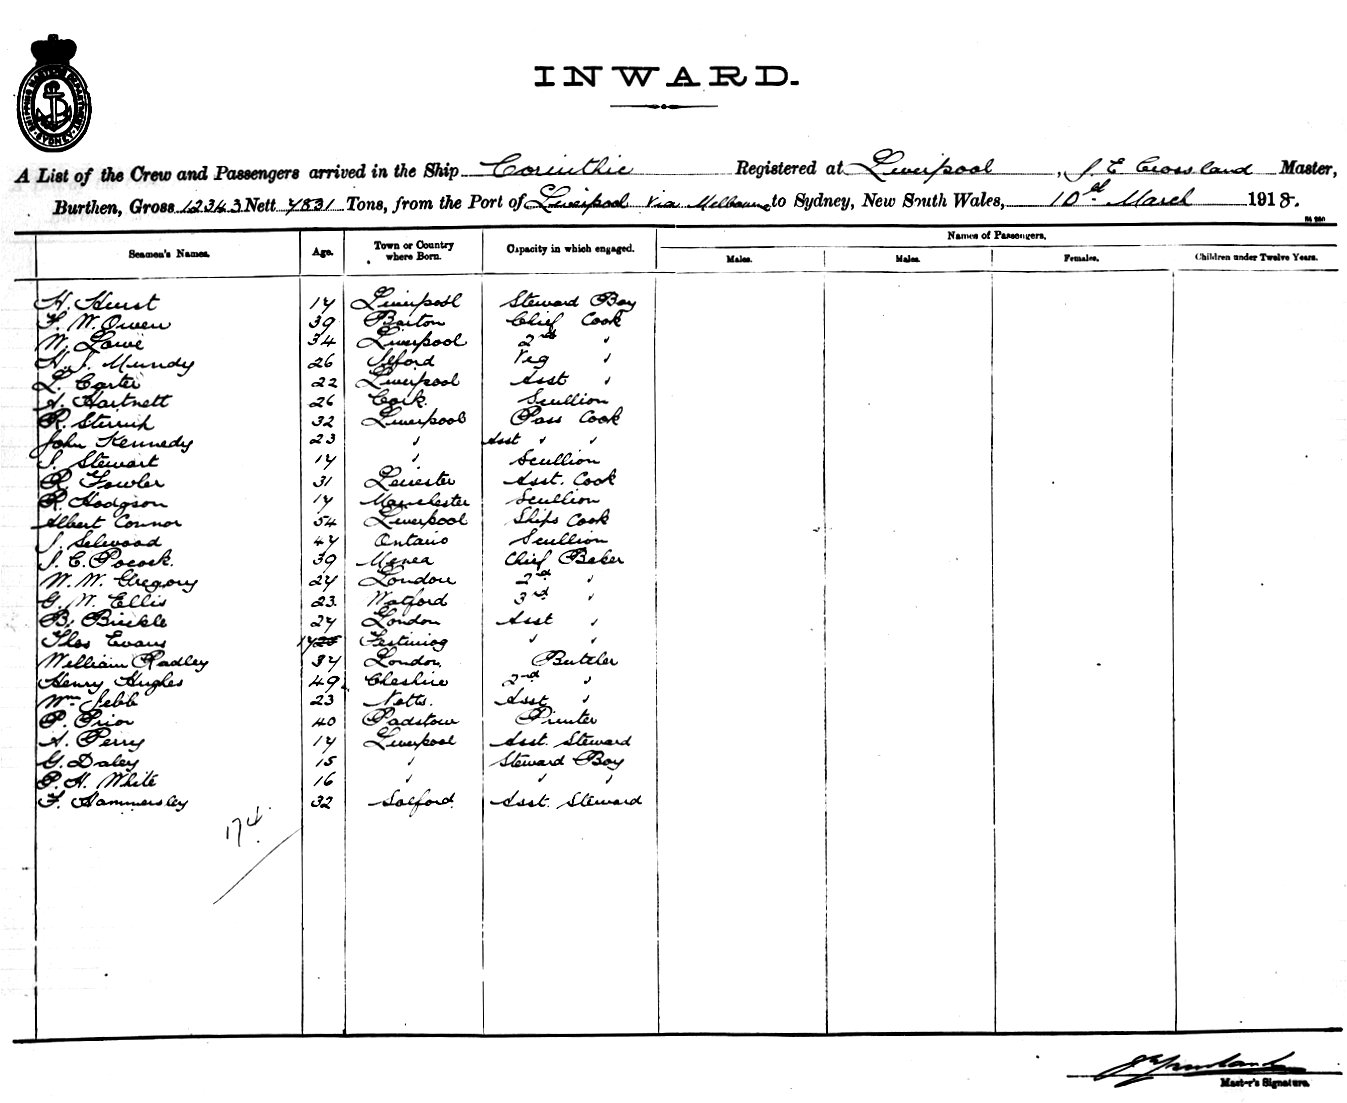 SHIPPING MASTER'S DEPARTMENT SYDNEY
INWARD.
A List of the Crew and Passengers arrived in the Ship Corinthic Registered at Liverpool, J. E. Crossland Master,
Burthen, Gross 12343 Nett 7831 Tons, from the Port of Liverpool via Melbourne to Sydney, New South Wales, 10th March 1918.
Names of Passengers.
Seamen's Names. Age. Town or Country where Born. Capacity in which engaged. Males. Males. Females. Children under Twelve Years.
H. Hurst 17 Liverpool Steward Boy
F. W. Owen 39 Barton Chief Cook
W. Lowe 34 Liverpool 2nd "
H. J. Mundy 26 Ilford Veg "
L. Carter 22 Liverpool Asst "
A. Hartnett 26 Cork. Scullion
R. Stirrup 32 Liverpool Pass Cook
John Kennedy 23 " Asst " "
J. Stewart 17 " Scullion
R. Fowler 31 Leicester Asst. Cook
R. Hodgson 17 Manchester Scullion
Albert Connor 54 Liverpool Ships Cook
J. Selwood 47 Ontario Scullion
J. C. Pocock. 39 Manea Chief Baker
W. W. Gregory 27 London 2nd "
G. W. Ellis 23. Watford 3rd "
B. Bickle 27 London Asst "
Thos Evans 17 Festiniog " "
William Radley 37 London. Butcher
Henry Hughes 49 Cheshire 2nd "
Wm Jebb 23 Notts. Asst "
P. Prior 40 Padstow Printer
A. Perry 17 Liverpool Asst. Steward
G. Daley 15 " Steward Boy
P. H. White 16 " " "
F. Hammersley 32 Salford. Asst. Steward
174.
Master's Signature.